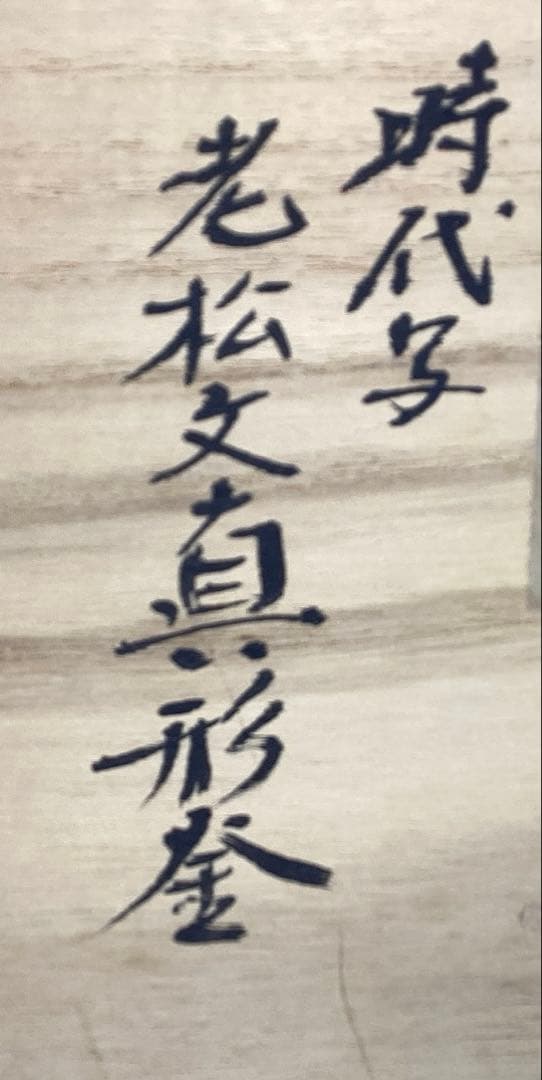 時代写
老松文真形釜